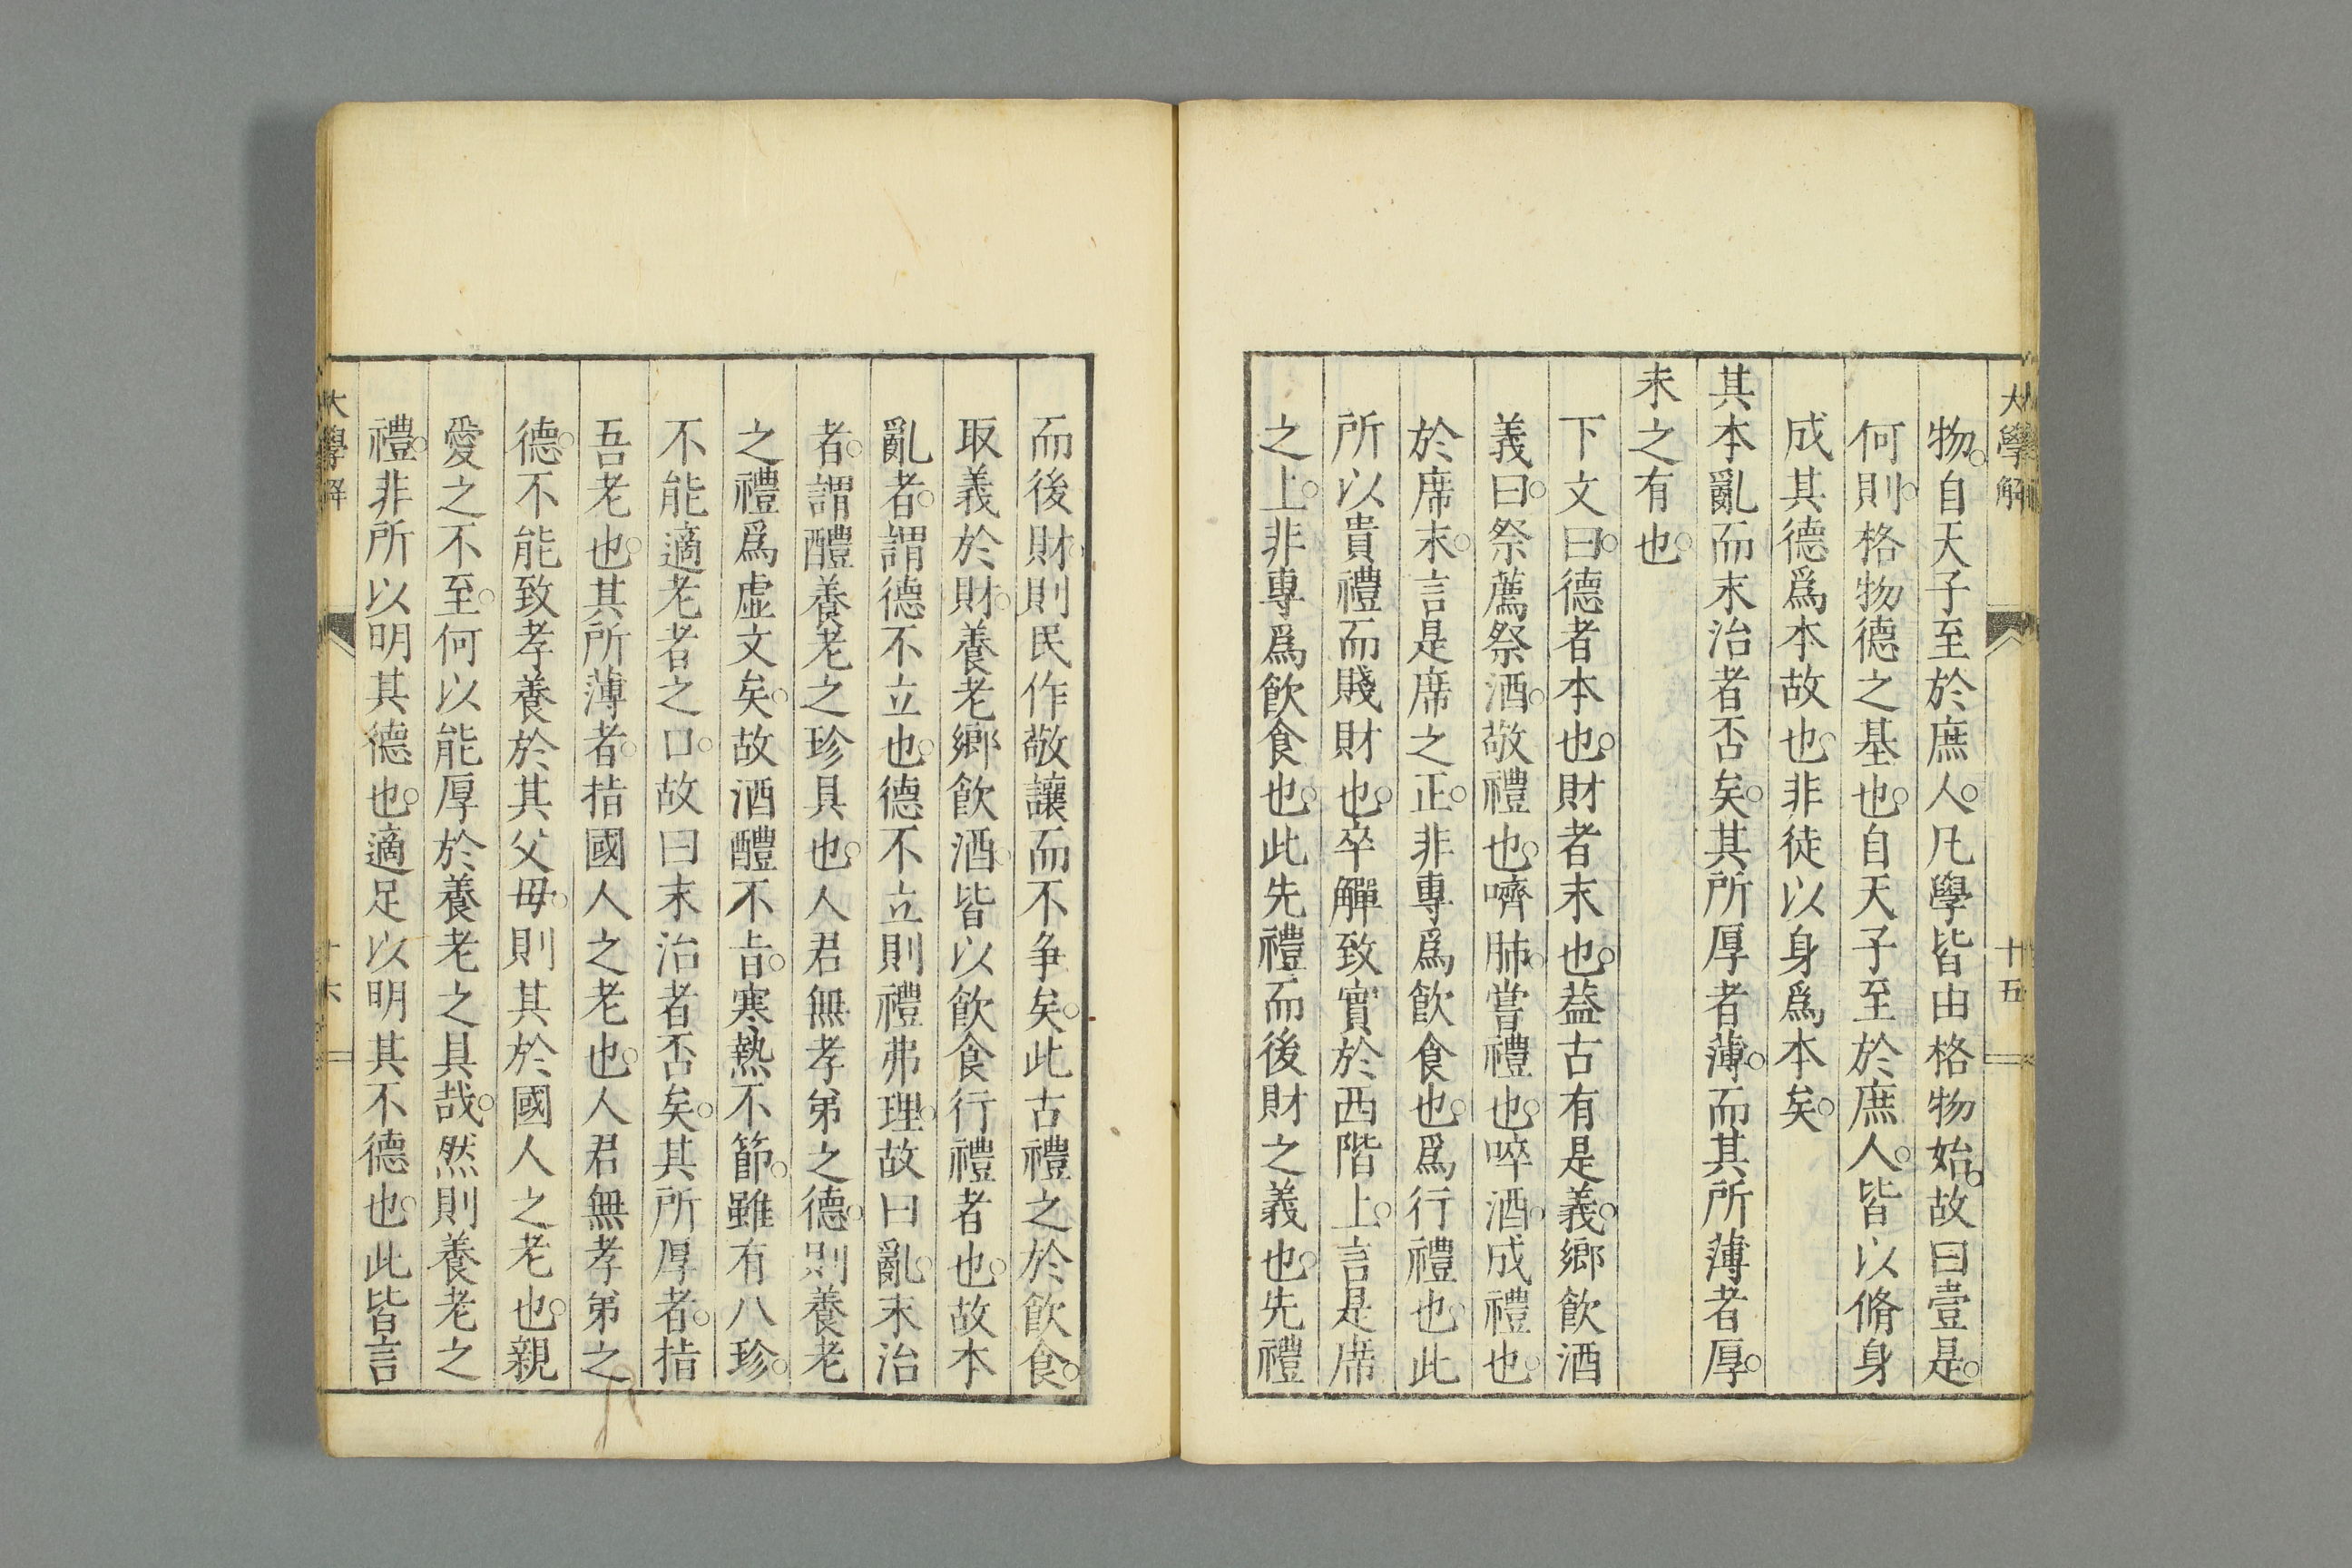 大學解
十五
物。自天子至於庶人。凡學皆由格物始。故曰壹是。
何則。格物德之基也。自天子至於庶人。皆以脩身
成其德爲本故也。非徒以身爲本矣。
其本亂而末治者否矣。其所厚者薄。而其所薄者厚。
未之有也。
下文曰。德者本也。財者末也。葢古有是義。鄉飮酒
義曰。祭薦祭酒。敬禮也。嚌肺。嘗禮也。啐酒。成禮也。
於席末。言是席之正。非專爲飮食也。爲行禮也。此
所以貴禮而賤財也。卒觶致實於西階上。言是席
之上。非專爲飮食也。此先禮而後財之義也。先禮
而後財。則民作敬讓而不争矣。此古禮之於飮食。
取義於財。養老鄉飮酒。皆以飮食行禮者也。故本
亂者。謂德不立也。德不立則禮弗理。故曰亂。末治
者。謂醴養老之珍具也。人君無孝弟之德。則養老
之禮爲虛文矣。故酒醴不㫖。寒熱不節。雖有八珍。
不能適老者之口。故曰末治者否矣。其所厚者。指
吾老也。其所薄者。指國人之老也。人君無孝弟之
德。不能致孝養於其父毋。則其於國人之老也。親
愛之不至。何以能厚於養老之具哉。然則養老之
禮。非所以明其德也。適足以明其不德也。此皆言
大學解
十六